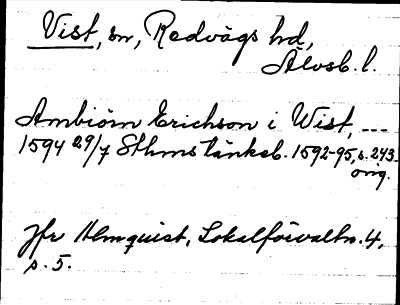 Vist, sn, Redvägs hd,
Älvsb. l.
Ambiörn Erichson i Wist, ---
1594 29/7 Sthms tänkeb. 1592-95, s. 243.
orig.
Jfr Almquist, Lokalförvaltn. 4,
s. 5.